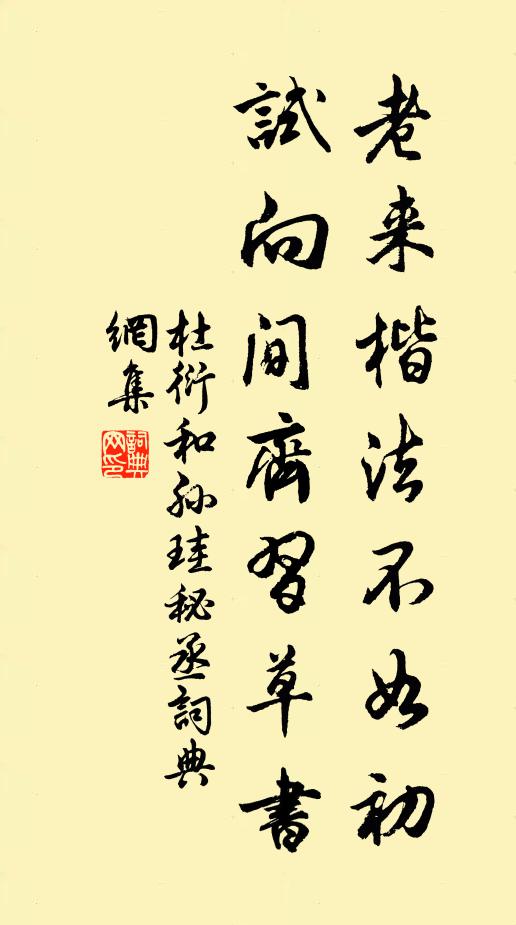 老来楷法不如初
試向間齊習草書
杜衍和孙珪秘丞詞典
網集
詞典
网印